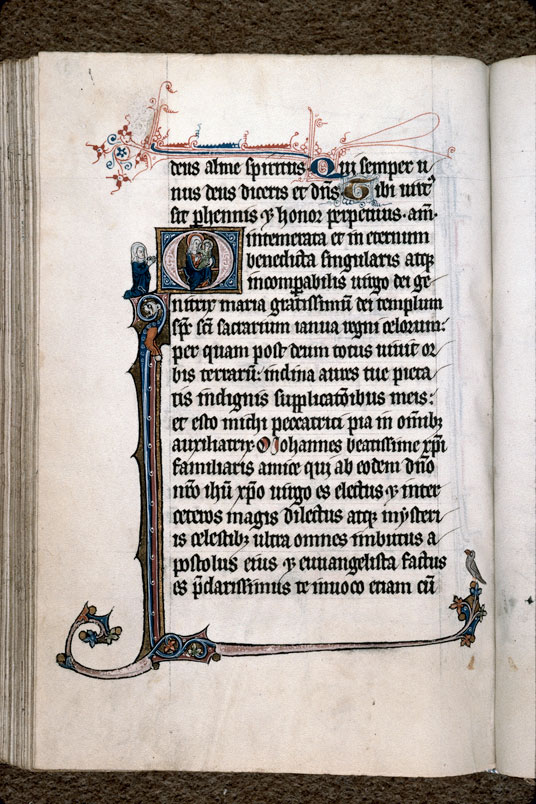 deus alme spiritus Qui semper u
nus deus diceris et dn̄s. Tibi uirt9
sit p̄hennis ⁊ honor perpetuus. am̄.
O intemerata et in eternum
benedicta singularis atq;
incomp̄abilis uirgo dei ge
nitrix maria gratissimū dei templum
sp̄c sc̄i sacrarium ianua regni celorum:
per quam post deum totus uiuit or
bis terrarū: inclina aures tue pieta
tis indignis supplicatōibus meis:
et esto michi peccatrici pia in om̄ibꝫ
auxiliatrix O Iohannes beatissime xp̄i
familiaris amice qui ab eodem dn̄o
nr̄o ih̄u xp̄o uirgo es electus ⁊ inter
ceteros magis dilectus atq; mysteri
is celestibꝫ ultra omnes imbutus a
postolus eius ⁊ euuangelista factus
es p̄clarissimus te inuoco etiam cū